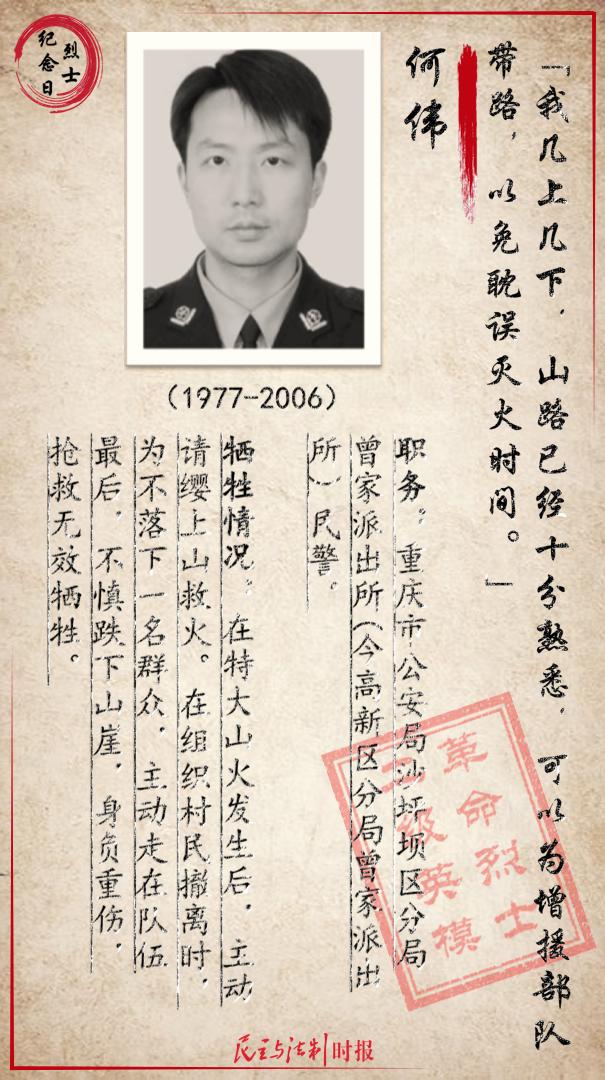 烈士
纪念日
「我几上几下，山路已经十分熟悉，可以为增援部队
带路，以免耽误灭火时间。」
何伟
(1977-2006)
职务：重庆市公安局沙坪坝区分局
曾家派出所(今高新区分局曾家派出
所)民警。
牺牲情况：在特大山火发生后，主动
请缨上山救火。在组织村民撤离时，
为不落下一名群众，主动走在队伍
最后，不慎跌下山崖，身负重伤，
抢救无效牺牲。
革命烈士
二级英模
民主与法制时报